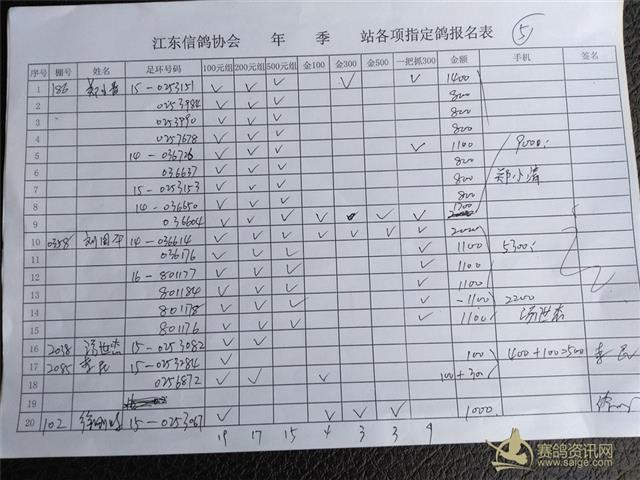 江东信鸽协会 年 季 站各项指定鸽报名表 ⑤
序号 棚号 姓名 足环号码 100元组 200元组 500元组 金100 金300 金500 一把抓300 金额 手机 签名
1 186 15-0253151 ✓ ✓ ✓ ✓ ✓ 1400
2 0253984 ✓ ✓ ✓ 800
3 0253990 ✓ ✓ ✓ 800
4 0257678 ✓ ✓ ✓ 800
5 14-036726 ✓ ✓ ✓ ✓ 1100 9000
6 036637 ✓ ✓ ✓ 800
7 15-0253153 ✓ ✓ ✓ 800 郑小清
8 14-036650 ✓ ✓ ✓ 800
9 036604 ✓ ✓ ✓ ✓ ✓ ✓ 1700
10 0358 刘国平 14-036614 ✓ ✓ ✓ ✓ ✓ ✓ ✓ 2000
11 036176 ✓ ✓ ✓ ✓ 1100 5300
12 16-801177 ✓ ✓ ✓ ✓ 1100
13 801184 ✓ ✓ ✓ ✓ 1100
14 801178 ✓ ✓ ✓ ✓ 1100 2200
15 801176 ✓ ✓ ✓ ✓ 1100
16 2038 15-0253082 ✓ ✓
17 2085 李民 15-0253284 ✓ 100 400+100=500 李民
18 0256872 ✓ ✓ ✓ 100+300
19
20 102 15-0253067 ✓ ✓ ✓ ✓ 1000
19 17 15 4 3 3 9
赛鸽资讯网
www.saige.com